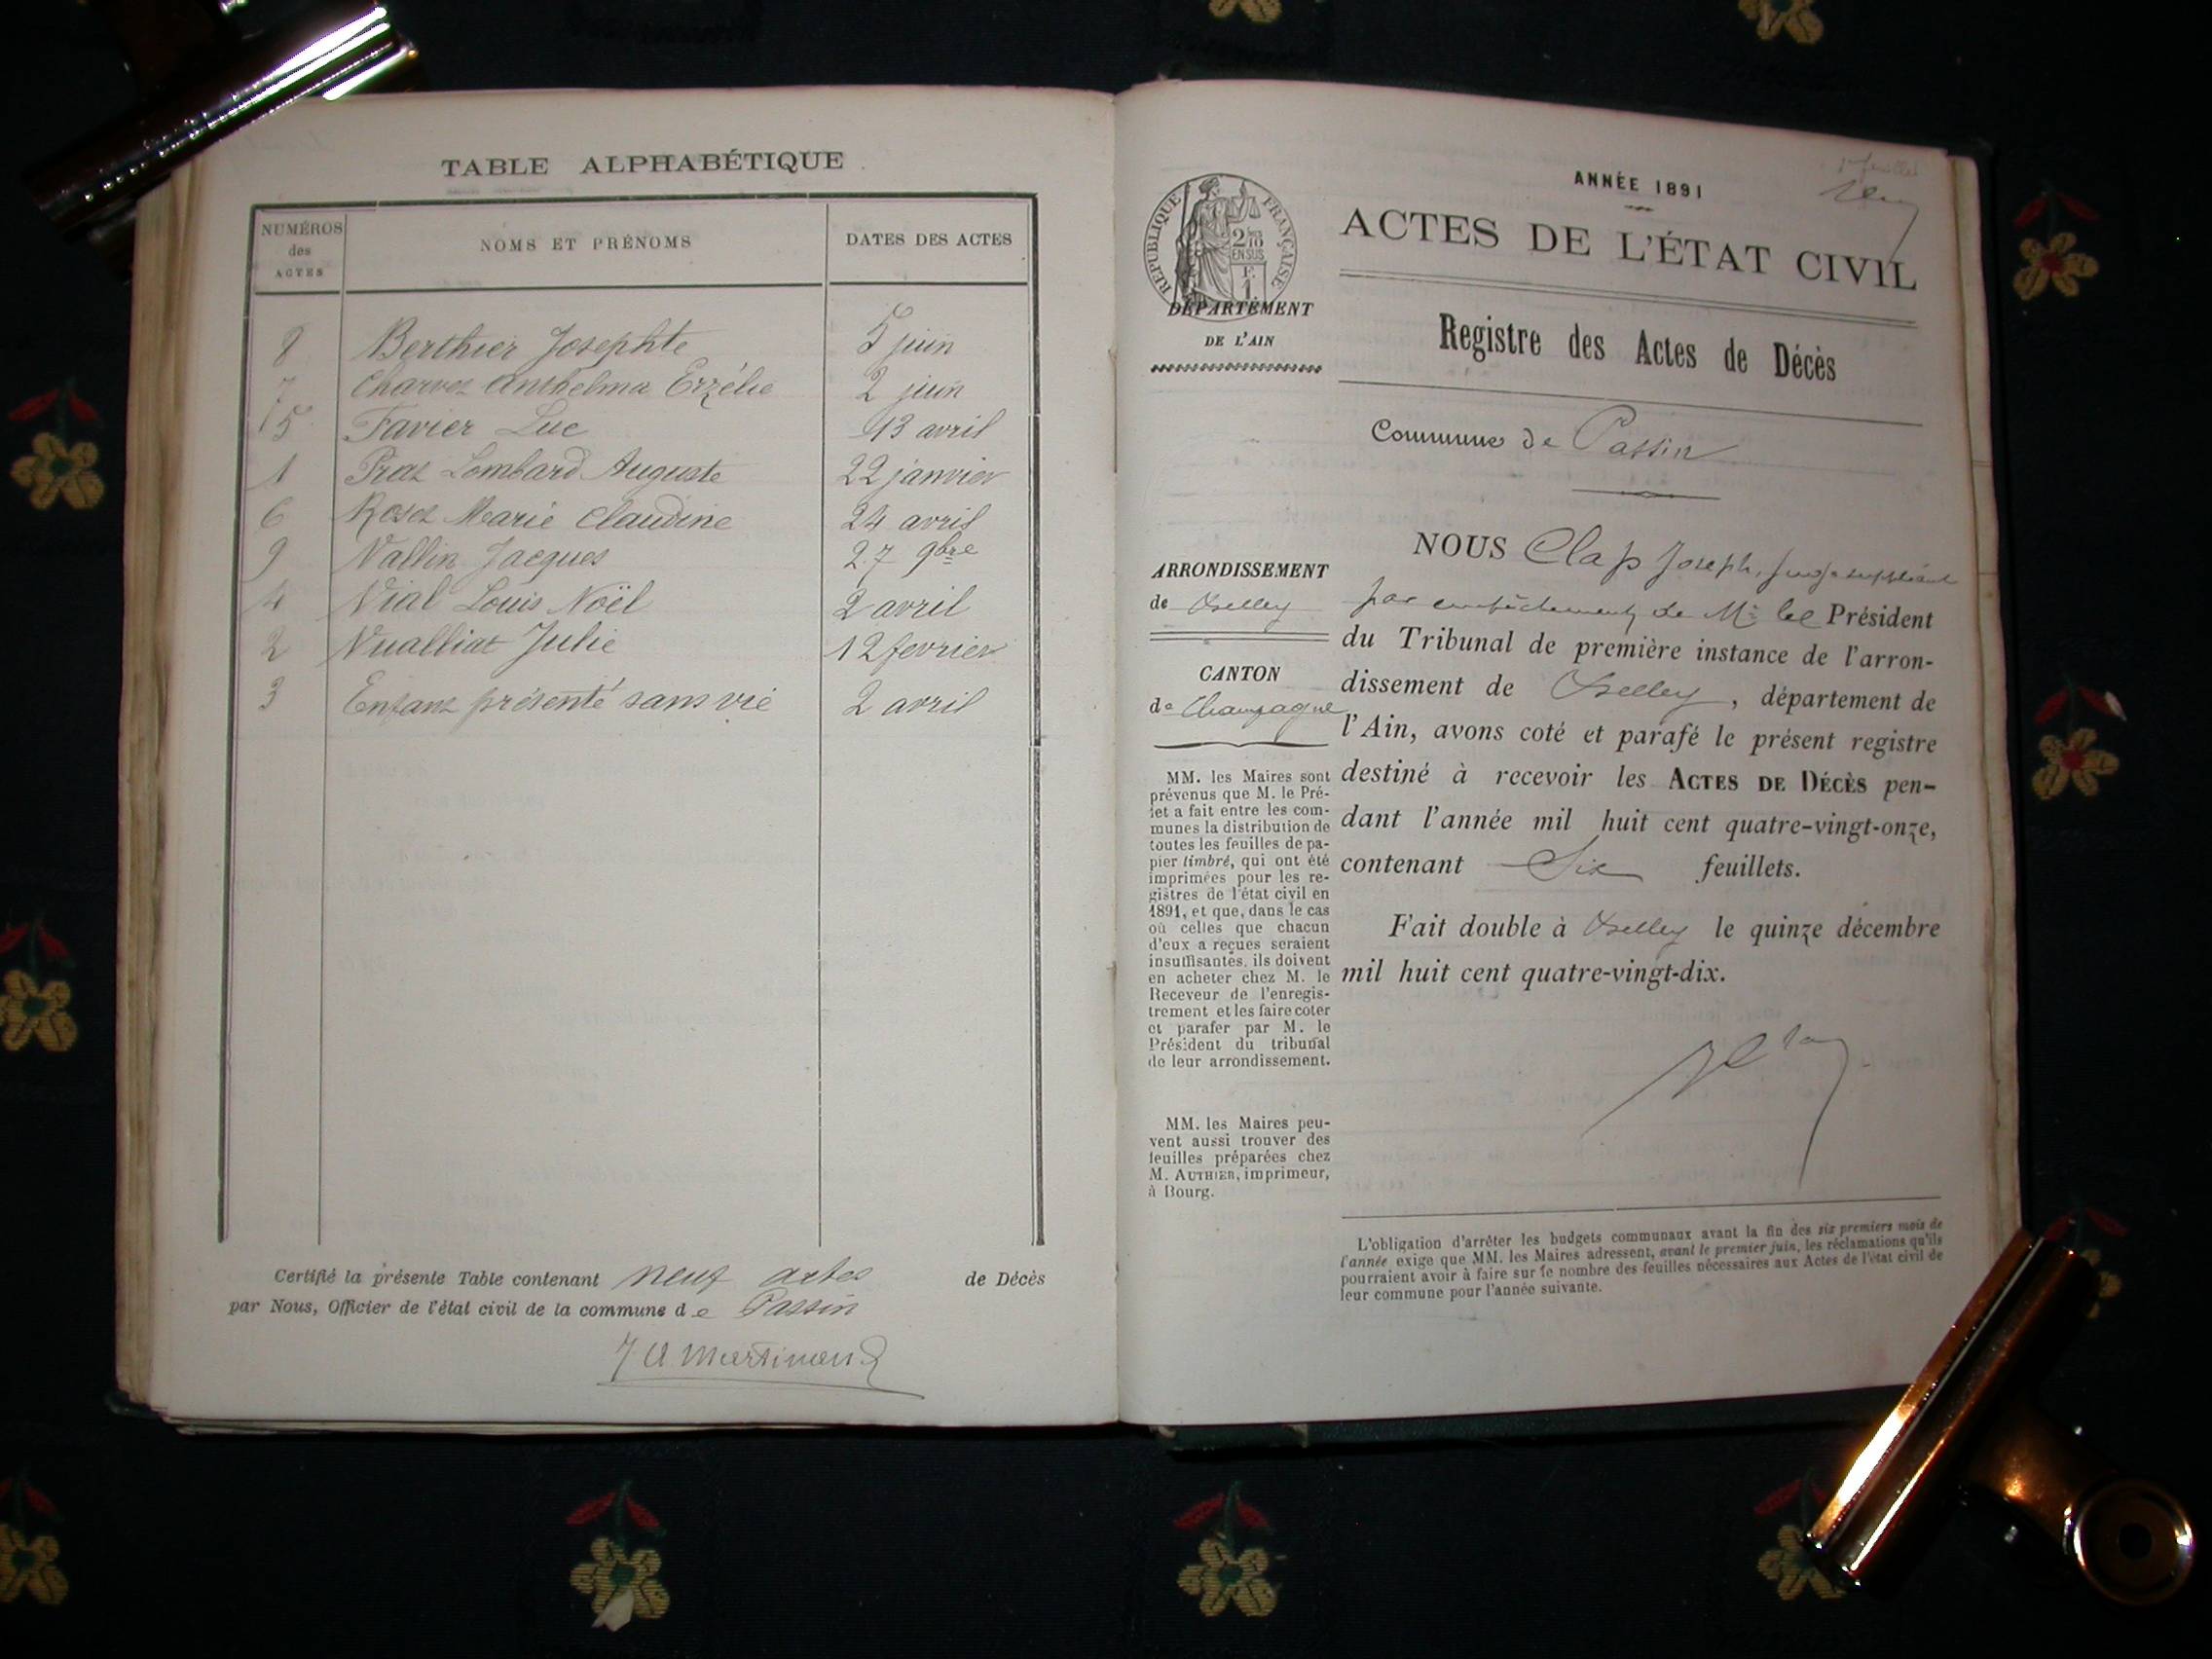 TABLE ALPHABÉTIQUE
NUMÉROS des ACTES
NOMS ET PRÉNOMS
DATES DES ACTES
8 Berthier Josephte 5 juin
7 Charvet Anthelma Erzélie 2 juin
5 Favier Luc 13 avril
1 Praz Lombard Auguste 22 janvier
6 Roset Marie Claudine 24 avril
9 Vallin Jacques 27 9bre
4 Vial Louis Noël 2 avril
2 Vualliat Julie 12 fevrier
3 Enfant présenté sans vie 2 avril
Certifié la présente Table contenant neuf actes de Décès
par Nous, Officier de l'état civil de la commune de Passin
J A Martinand
RÉPUBLIQUE FRANÇAISE
2/10
EN SUS
F.
1
DÉPARTEMENT
DE L'AIN
ARRONDISSEMENT
de Belley
CANTON
de Champagne
MM. les Maires sont
prévenus que M. le Pré-
fet a fait entre les com-
munes la distribution de
toutes les feuilles de pa-
pier timbré, qui ont été
imprimées pour les re-
gistres de l'état civil en
1891, et que, dans le cas
où celles que chacun
d'eux a reçues seraient
insuffisantes, ils doivent
en acheter chez M. le
Receveur de l'enregis-
trement et les faire coter
et parafer par M. le
Président du tribunal
de leur arrondissement.
MM. les Maires peu-
vent aussi trouver des
feuilles préparées chez
M. AUTHIER, imprimeur,
à Bourg.
1er feuillet
ANNÉE 1891
ACTES DE L'ÉTAT CIVIL
Registre des Actes de Décès
Commune de Passin
NOUS Clap Joseph, juge suppléant
par empêchement de Mr le Président
du Tribunal de première instance de l'arron-
dissement de Belley, département de
l'Ain, avons coté et parafé le présent registre
destiné à recevoir les ACTES DE DÉCÈS pen-
dant l'année mil huit cent quatre-vingt-onze,
contenant Six feuillets.
Fait double à Belley le quinze décembre
mil huit cent quatre-vingt-dix.
L'obligation d'arrêter les budgets communaux avant la fin des six premiers mois de
l'année exige que MM. les Maires adressent, avant le premier juin, les réclamations qu'ils
pourraient avoir à faire sur le nombre des feuilles nécessaires aux Actes de l'état civil de
leur commune pour l'année suivante.